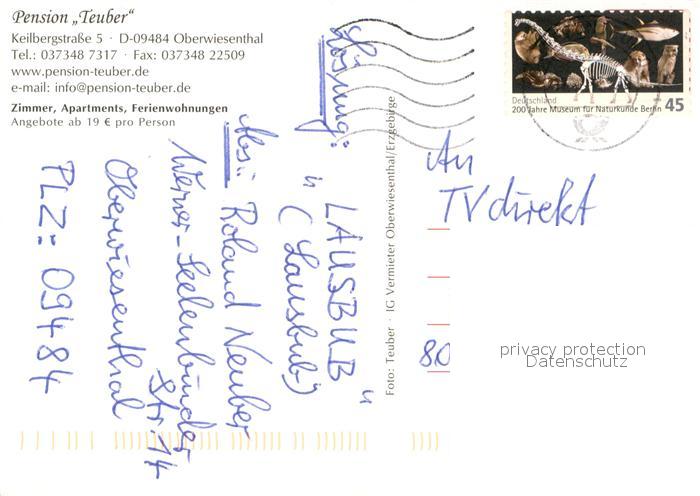 Pension „Teuber“
Keilbergstraße 5 · D-09484 Oberwiesenthal
Tel.: 037348 7317 · Fax: 037348 22509
www.pension-teuber.de
e-mail: info@pension-teuber.de
Zimmer, Apartments, Ferienwohnungen
Angebote ab 19 € pro Person
Lösung:
"LAUSBUB"
(Lausbub)
Abs.: Roland Neuber
Werner-Seelenbinder
Str. 14
Oberwiesenthal
PLZ: 09484
Foto: Teuber · IG Vermieter Oberwiesenthal/Erzgebirge
Deutschland
200 Jahre Museum für Naturkunde Berlin
45
An
TV direkt
80
privacy protection
Datenschutz